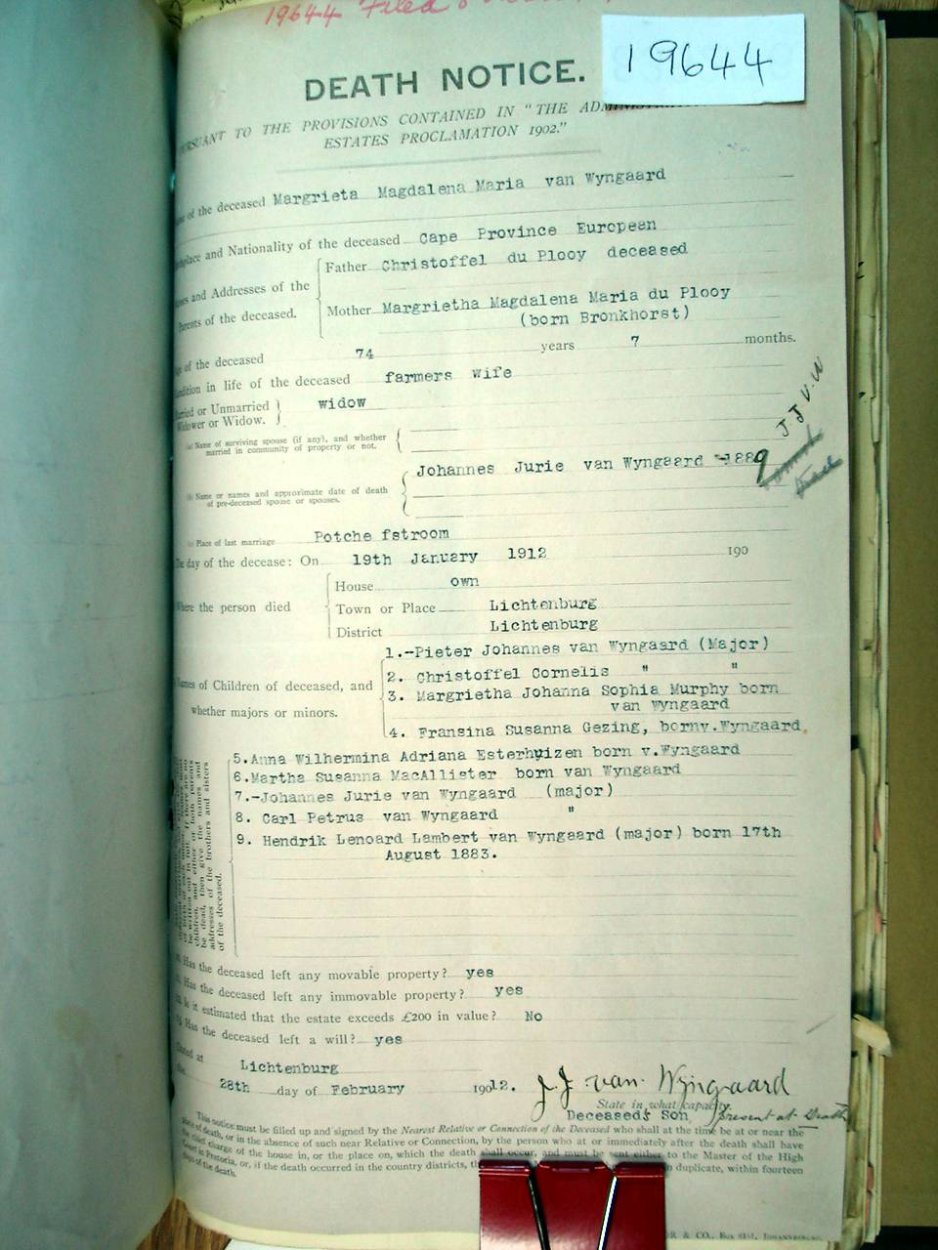 19644 Filed
19644
DEATH NOTICE.
TO THE PROVISIONS CONTAINED IN "THE
ESTATES PROCLAMATION 1902."
of the deceased Margrieta Magdalena Maria van Wyngaard
and Nationality of the deceased Cape Province European
and Addresses of the
Parents of the deceased.
Father Christoffel du Plooy deceased
Mother Margrietha Magdalena Maria du Plooy
(born Bronkhorst)
of the deceased 74 years 7 months.
in life of the deceased farmers wife
Married or Unmarried
Widower or Widow. widow
Name of surviving spouse (if any), and whether
married in community of property or not.
J J v. W
Johannes Jurie van Wyngaard -1889
(b) Name or names and approximate date of death
of pre-deceased spouse or spouses.
Place of last marriage Potche fstroom
The day of the decease: On 19th January 1912 190
Where the person died
House own
Town or Place Lichtenburg
District Lichtenburg
Names of Children of deceased, and
whether majors or minors.
1.-Pieter Johannes van Wyngaard (Major)
2. Christoffel Cornelis " "
3. Margrietha Johanna Sophia Murphy born
van Wyngaard
4. Fransina Susanna Gezing, bornv.Wyngaard.
5.Anna Wilhermina Adriana Esterhuizen born v.Wyngaard
6.Martha Susanna MacAllister born van Wyngaard
7.-Johannes Jurie van Wyngaard (major)
8. Carl Petrus van Wyngaard "
9. Hendrik Lenoard Lambert van Wyngaard (major) born 17th
August 1883.
children, and either or both parents
be dead, then give the names and
addresses of the brothers and sisters
of the deceased.
Has the deceased left any movable property? yes
Has the deceased left any immovable property? yes
Is it estimated that the estate exceeds £200 in value? No
Has the deceased left a will? yes
Dated at Lichtenburg
28th day of February 1912.
J.J van Wyngaard
State in what capacity
Deceaseds Son present at Death
This notice must be filled up and signed by the Nearest Relative or Connection of the Deceased who shall at the time be at or near the
place of death, or in the absence of such near Relative or Connection, by the person who at or immediately after the death shall have
the chief charge of the house in, or the place on, which the death shall occur, and must be sent either to the Master of the High
Court in Pretoria, or, if the death occurred in the country districts, duplicate, within fourteen
days of the death.
& CO., Box